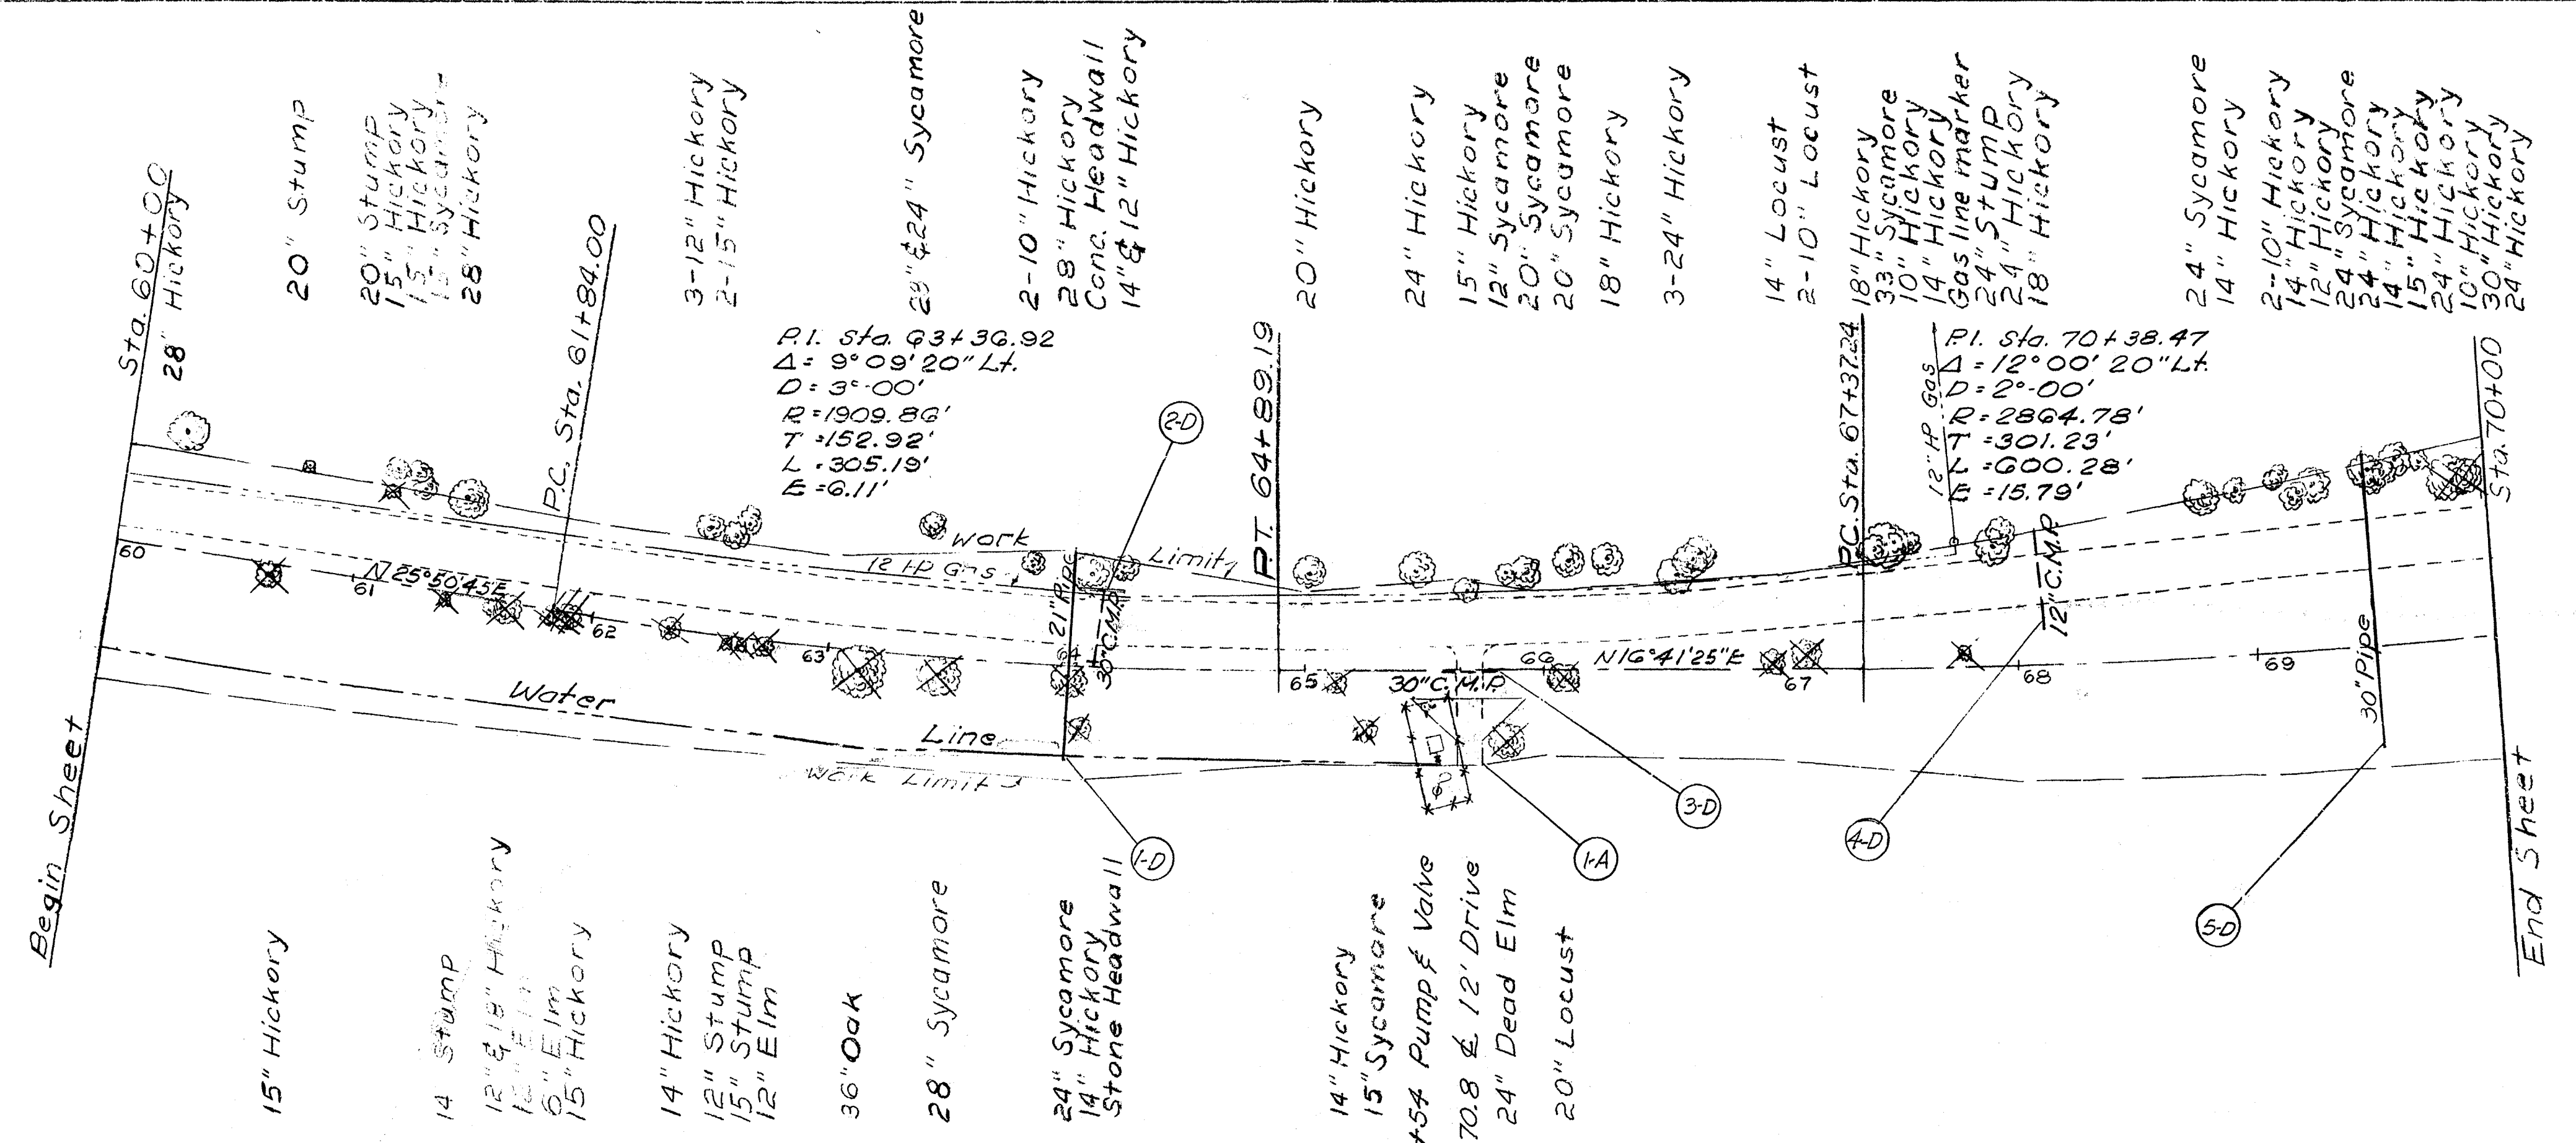 Sta. 60+00
28" Hickory
20" Stump
20" Stump
15" Hickory
15" Hickory
Sycamore
28" Hickory
P.C. Sta. 61+84.00
3-12" Hickory
2-15" Hickory
& 24" Sycamore
2-10" Hickory
28" Hickory
Conc. Headwall
14" & 12" Hickory
20" Hickory
24" Hickory
15" Hickory
12" Sycamore
20" Sycamore
20" Sycamore
18" Hickory
3-24" Hickory
14" Locust
2-10" Locust
18" Hickory
33" Sycamore
10" Hickory
14" Hickory
Gas line marker
24" Stump
24" Hickory
18" Hickory
24" Sycamore
14" Hickory
2-10" Hickory
14" Hickory
12" Hickory
24" Sycamore
24" Hickory
14" Hickory
15" Hickory
24" Hickory
10" Hickory
30" Hickory
24" Hickory
P.I. Sta. 63+36.92
Δ = 9°09'20" Lt.
D = 3°-00'
R = 1909.86'
T = 152.92'
L = 305.19'
E = 6.11'
2-D
P.T. 64+89.19
P.C. Sta. 67+37.24
12" HP Gas
P.I. Sta. 70+38.47
Δ = 12°00'20" Lt.
D = 2°-00'
R = 2864.78'
T = 301.23'
L = 600.28'
E = 15.79'
Sta. 70+00
Work Limit
12" HP Gas
60
61
N 25°50'45" E
62
63
21" Pipe
64
30" C.M.P.
65
30" C.M.P.
66
N 16°41'25" E
67
12" C.M.P.
68
69
30" Pipe
Water Line
Work Limit
1-D
3-D
1-A
4-D
5-D
Begin Sheet
End Sheet
15" Hickory
14" Stump
12" & 18" Hickory
12" Elm
6" Elm
15" Hickory
14" Hickory
12" Stump
15" Stump
12" Elm
36" Oak
28" Sycamore
24" Sycamore
14" Hickory
Stone Headwall
14" Hickory
15" Sycamore
+54 Pump & Valve
70.8 ℄ 12' Drive
24" Dead Elm
20" Locust